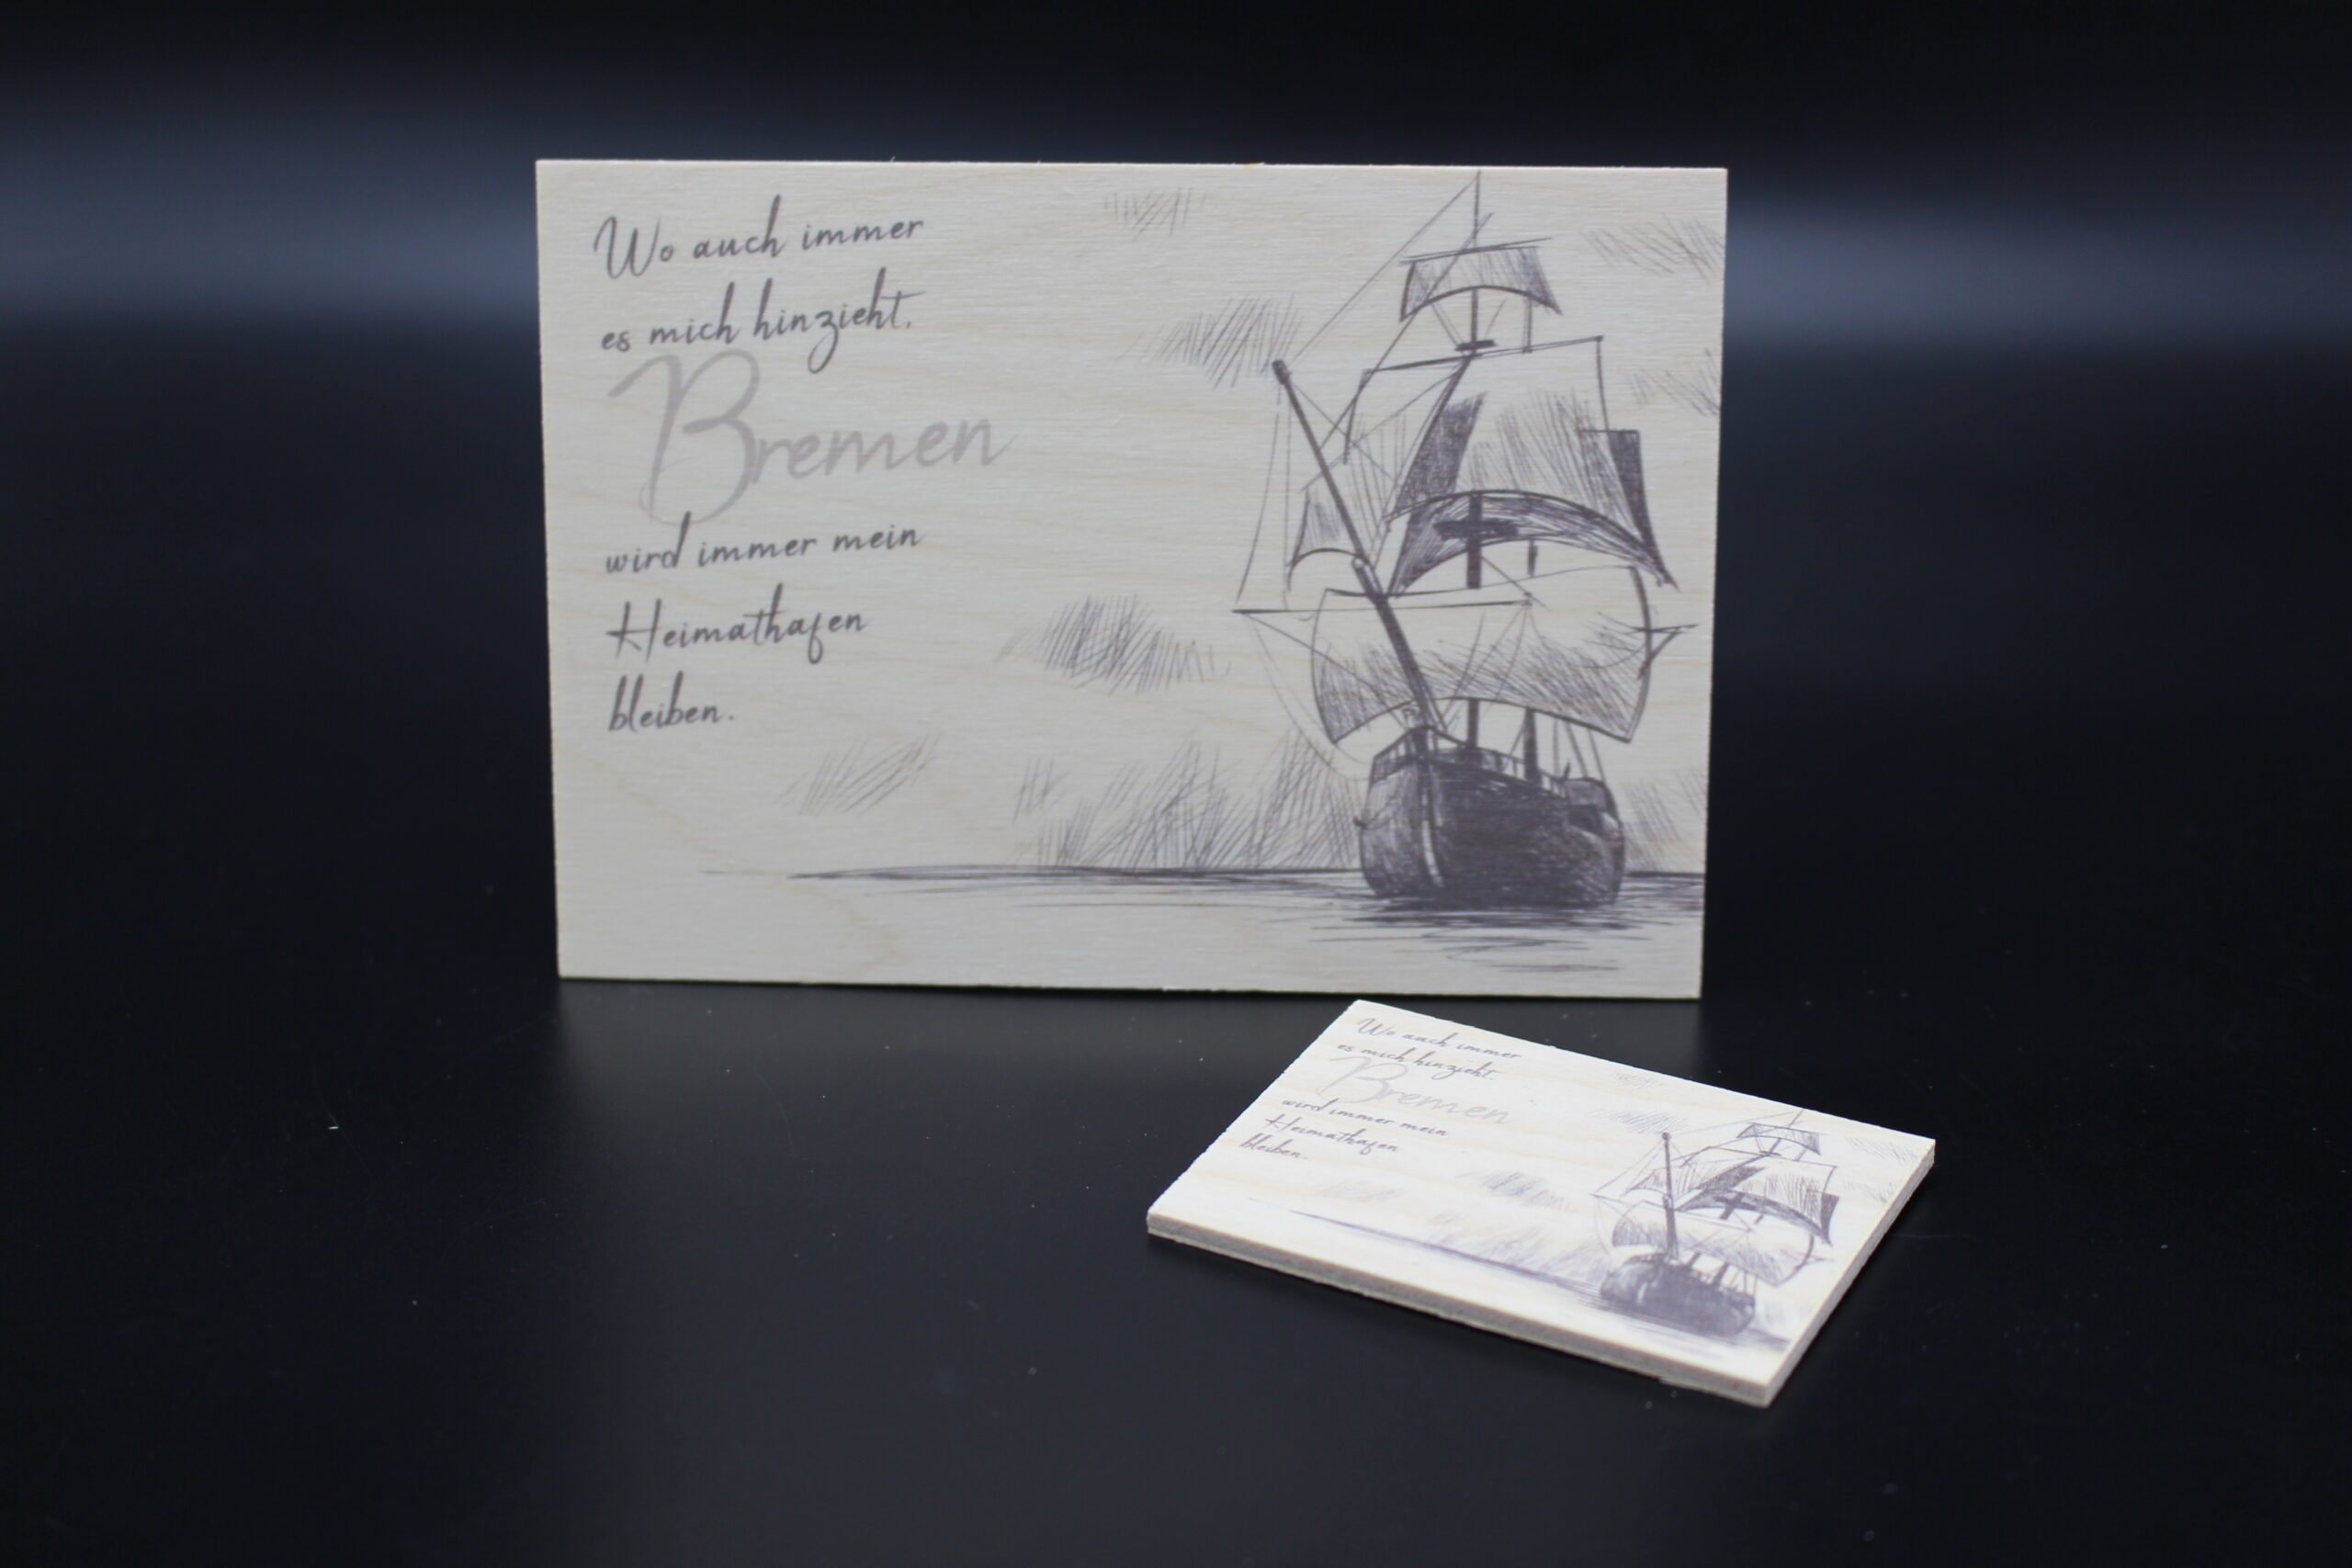 Wo auch immer
es mich hinzieht,
Bremen
wird immer mein
Heimathafen
bleiben.
Wo auch immer
es mich hinzieht,
Bremen
wird immer mein
Heimathafen
bleiben.